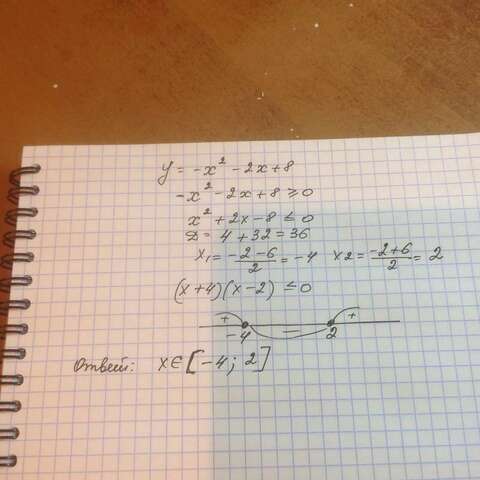 y = -x² - 2x + 8
-x² - 2x + 8 ≥ 0
x² + 2x - 8 ≤ 0
D = 4 + 32 = 36
x₁ = (-2-6)/2 = -4 x2 = (-2+6)/2 = 2
(x+4)(x-2) ≤ 0
+ − +
-4 2
Ответ: x∈[-4; 2]